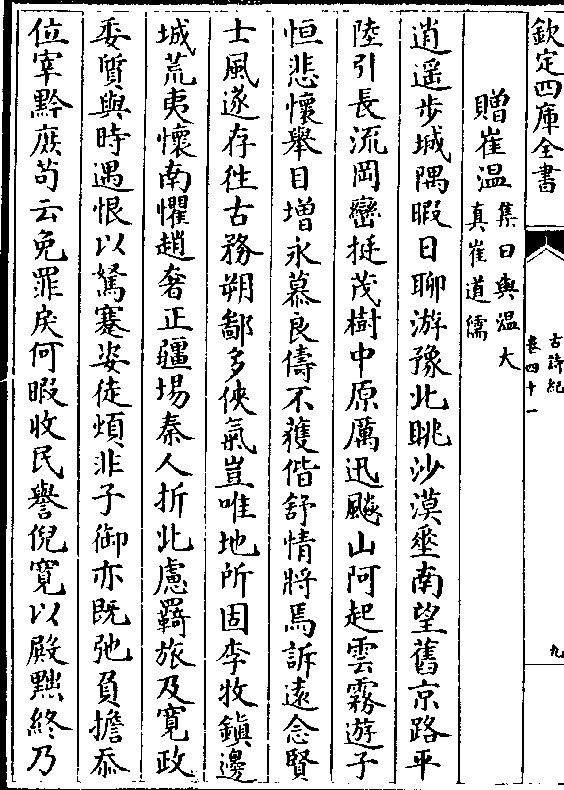 欽定四庫全書
古詩紀
卷四十一
九
贈崔溫集曰與溫太
真崔道儒
逍遥步城隅暇日聊游豫北眺沙漠垂南望舊京路平
陸引長流岡巒挺茂樹中原厲迅飈山阿起雲霧遊子
恒悲懷舉目增永慕良儔不獲偕舒情將焉訴遠念賢
士風遂存徃古務朔鄙多俠氣豈唯地所固李牧鎮邊
城荒夷懷南懼趙奢正疆場秦人折北慮羇旅及寛政
委質與時遇恨以駑蹇姿徒煩非子御亦既弛負擔忝
位宰黔庶苟云免罪戾何暇收民譽倪寛以殿黜終乃